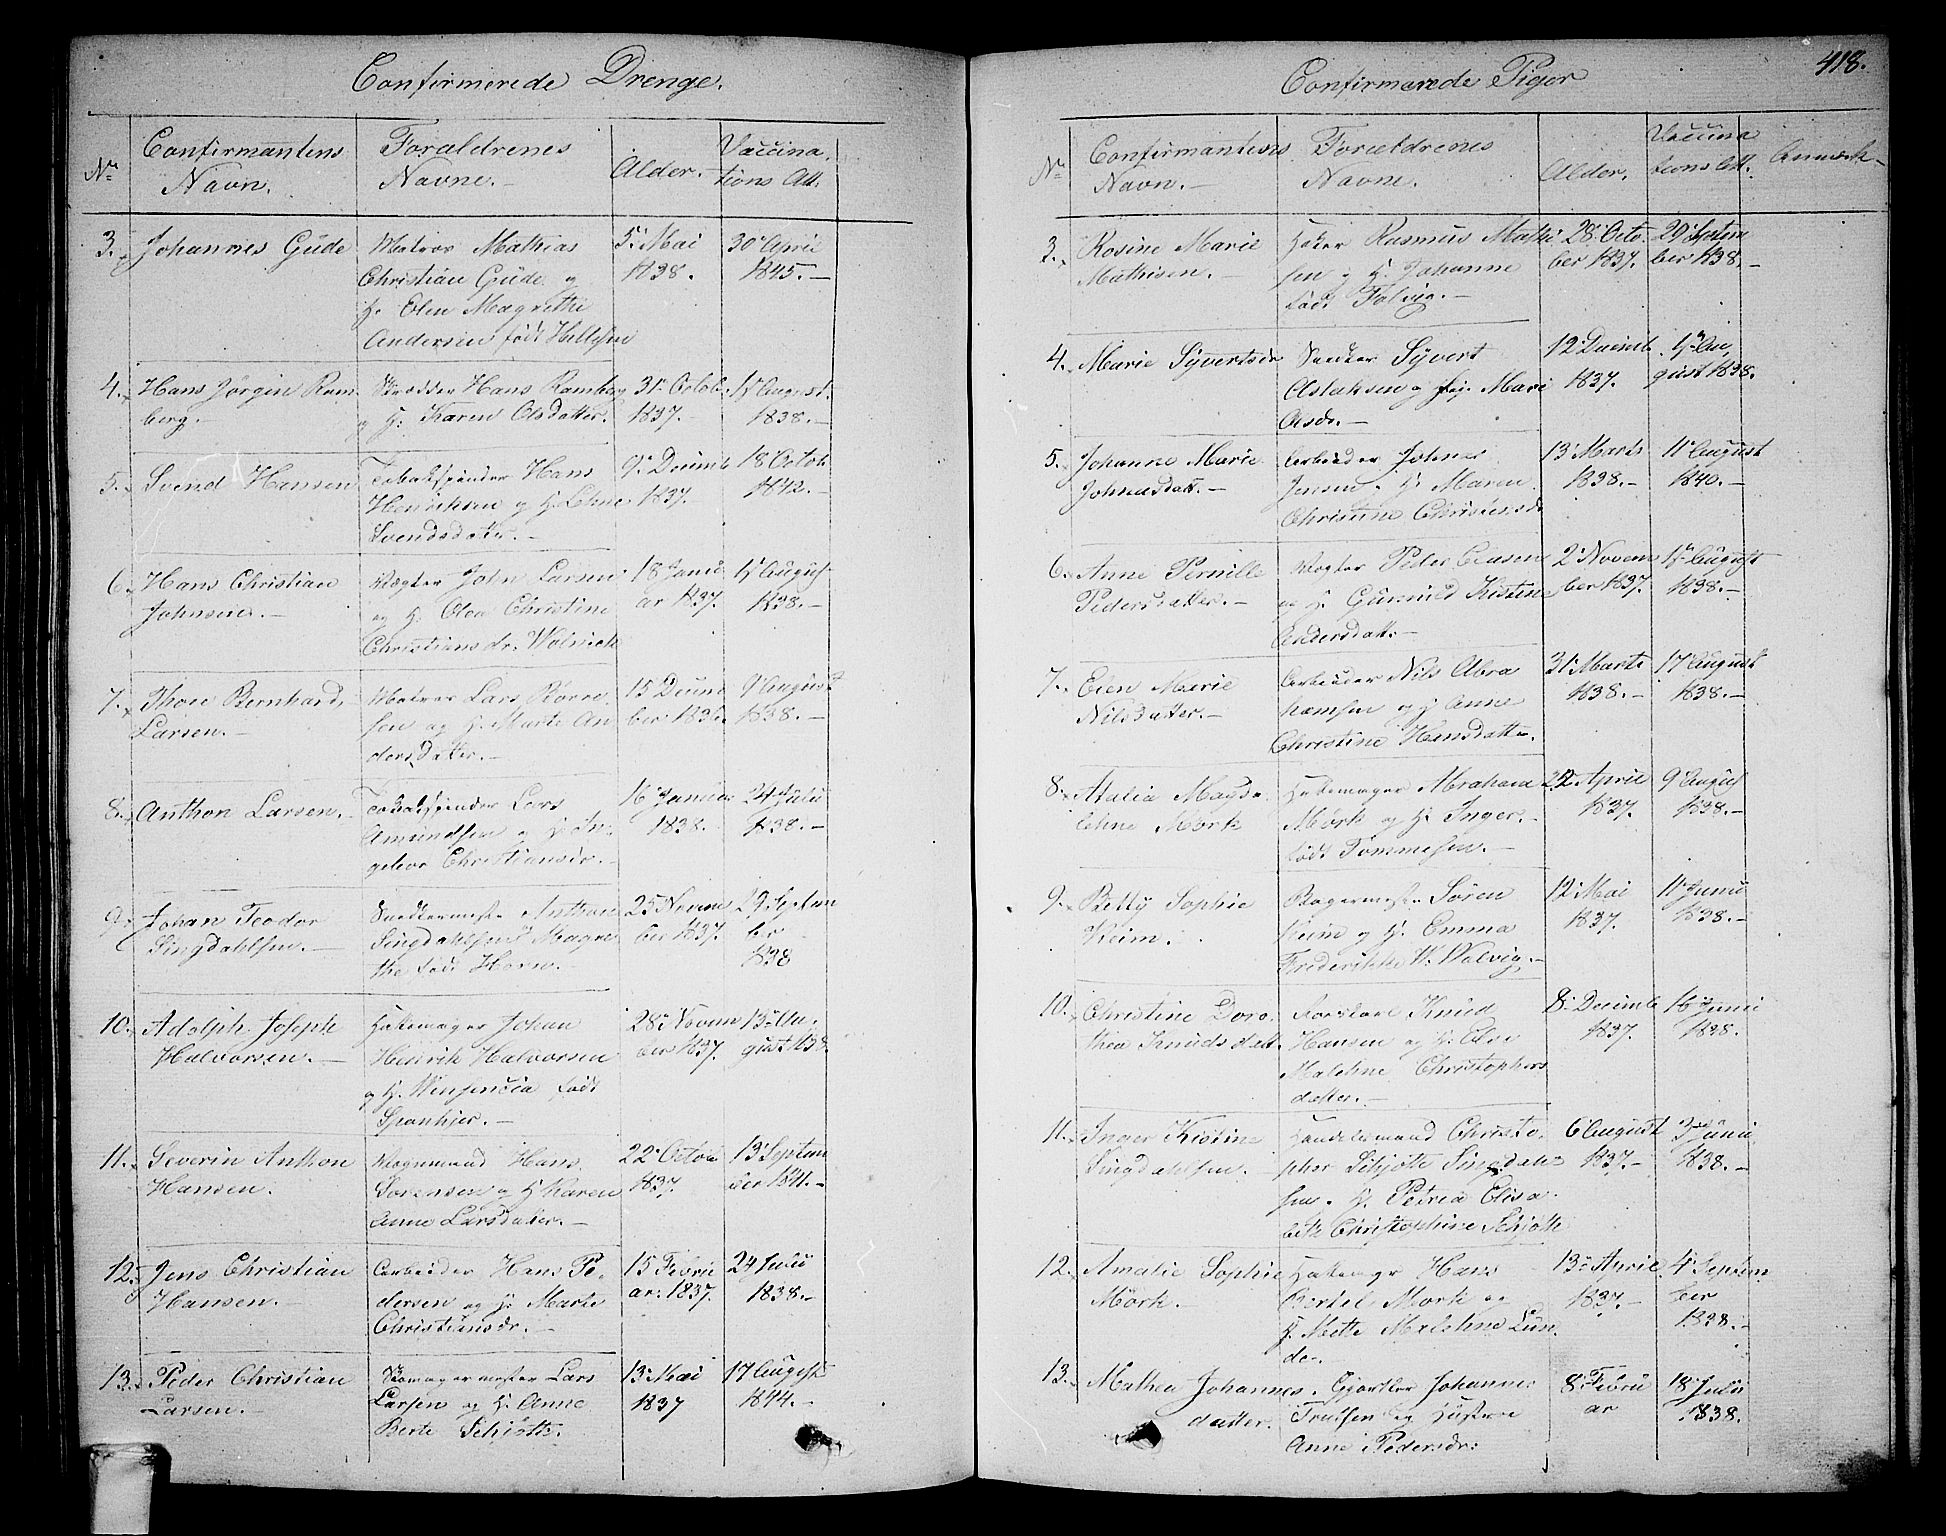 Confirmerede Drenge.
No
Confirmantens
Navn.
Forældrenes
Navne.
Alder.
Vaccina
tions Att.
3. Johannes Gude
Matros Mathias
Christian Gude og
H. Elen Magrethe
Andersen født Hellesen
5. Mai
1838.
30 April
1845.
4. Hans Jørgin Ram
berg.
Skrædder Hans Ramberg
og H. Karen Olsdatter.
31 Octob.
1837.
17 August
1838.
5. Svend Hansen
Tobakspinder Hans
Henriksen og H. Lehne
Svendsdatter.
9. Decemb
1837.
18 Octob
1842.
6. Hans Christian
Johnsen.
Vægter John Larsen
og H. Olva Christine
Christiansdr. Walnick
18 Janu
ar 1837.
17 August
1838.
7. Thore Bernhard
Larsen.
Matros Lars Børre
sen og H. Marte An
dersdatter.
15 Decem
ber 1836.
9 August
1838.
8. Anthon Larsen.
Tobakspinder Lars
Amundsen og H. In
geleva Christiansdr.
16 Januar
1838.
24 Juli
1838.
9. Johan Teodor
Singdahlsen.
Snedkermester Anthon
Singdahlsen Magre
the født Horn.
25 Novem
ber 1837.
29 Septem
ber
1838
10. Adolph Joseph
Halvorsen.
Hattemager Johan
Henrik Halvorsen
og H. Winsencia født
Spanhier.
28 Novem
ber 1837.
13 Au
gust 1838.
11. Severin Anthon
Hansen.
Vognmand Hans
Sørensen og H. Karen
Anne Larsdatter.
22 Octob
1837.
13 Septem
ber 1841.
12. Jens Christian
Hansen.
Arbeider Hans Pe
dersen og H. Marte
Christiansdr.
15 Febru
ar 1837.
24 Juli
1838.
13. Peder Christian
Larsen.
Skomagermester Lars
Larsen og H. Anne
Berte Schiøtt.
13 Mai
1837
17 August
1844.
418.
Confirmerede Piger
No
Confirmantens
Navn.
Forældrenes
Navne.
Alder.
Vaccina
tions Att.
Anmærk
3. Rosine Marie
Mathisen.
Høker Rasmus Mathi
sen og H. Johanne
født Falvig.
28 Octo
ber 1837.
29 Septem
ber 1838.
4. Marie Syvertsdr
Snedker Syvert
Aslaksen og Mari
Olsdr.
12 Decemb
1837.
17 Au
gust 1838.
5. Johanne Marie
Johnesdatt.
Arbeider Johnes
Jensen. H. Maren
Christine Christensdr
13 Marts
1838.
11 August
1840.
6. Anne Pernille
Pedersdatter.
Vægter Peder Clausen
og H. Gunnild Kistine
Andersdatt.
2 Novem
ber 1837.
17 August
1838.
7. Elen Marie
Nilsdatter.
Arbeider Nils Abra
hamsen og H. Anne
Christine Hansdatter.
31 Marts
1838.
17 August
1838.
8. Atalia Magda
lehne Mørk
Hattemager Abraham
Mørk og H. Inger
født Tommesen.
22 April
1837.
9 August
1838.
9. Betty Sophie
Keim.
Bagermester Søren
Keim og H. Emma
Frederikke W. Walvig.
12 Mai
1837.
11 Juni
1838.
10. Christine Doro
thea Knudsdatt.
Forskare Knud
Hansen og H. Else
Malehne Christophers
datter.
8. Decemb
1837.
16 Juni
1838.
11. Inger Kistine
Singdahlsen.
Handelsmand Christo
pher Schjøtt Singdahl
sen. H. Petrea Elisa
beth Christophine Schjøtt
6 August
1837.
3 Juni
1838.
12. Amalie Sophie
Mörk.
Hattemager Hans
Bertel Mørk og
H. Mette Malehne Lun
de.
13 April
1837.
4 Septem
ber
1838.
13. Mathea Johannes
datter.
Gjørtler Johannes
Trulsen og Hustrue
Anne Pedersdr.
8 Febru
ar
18 Juli
1838.